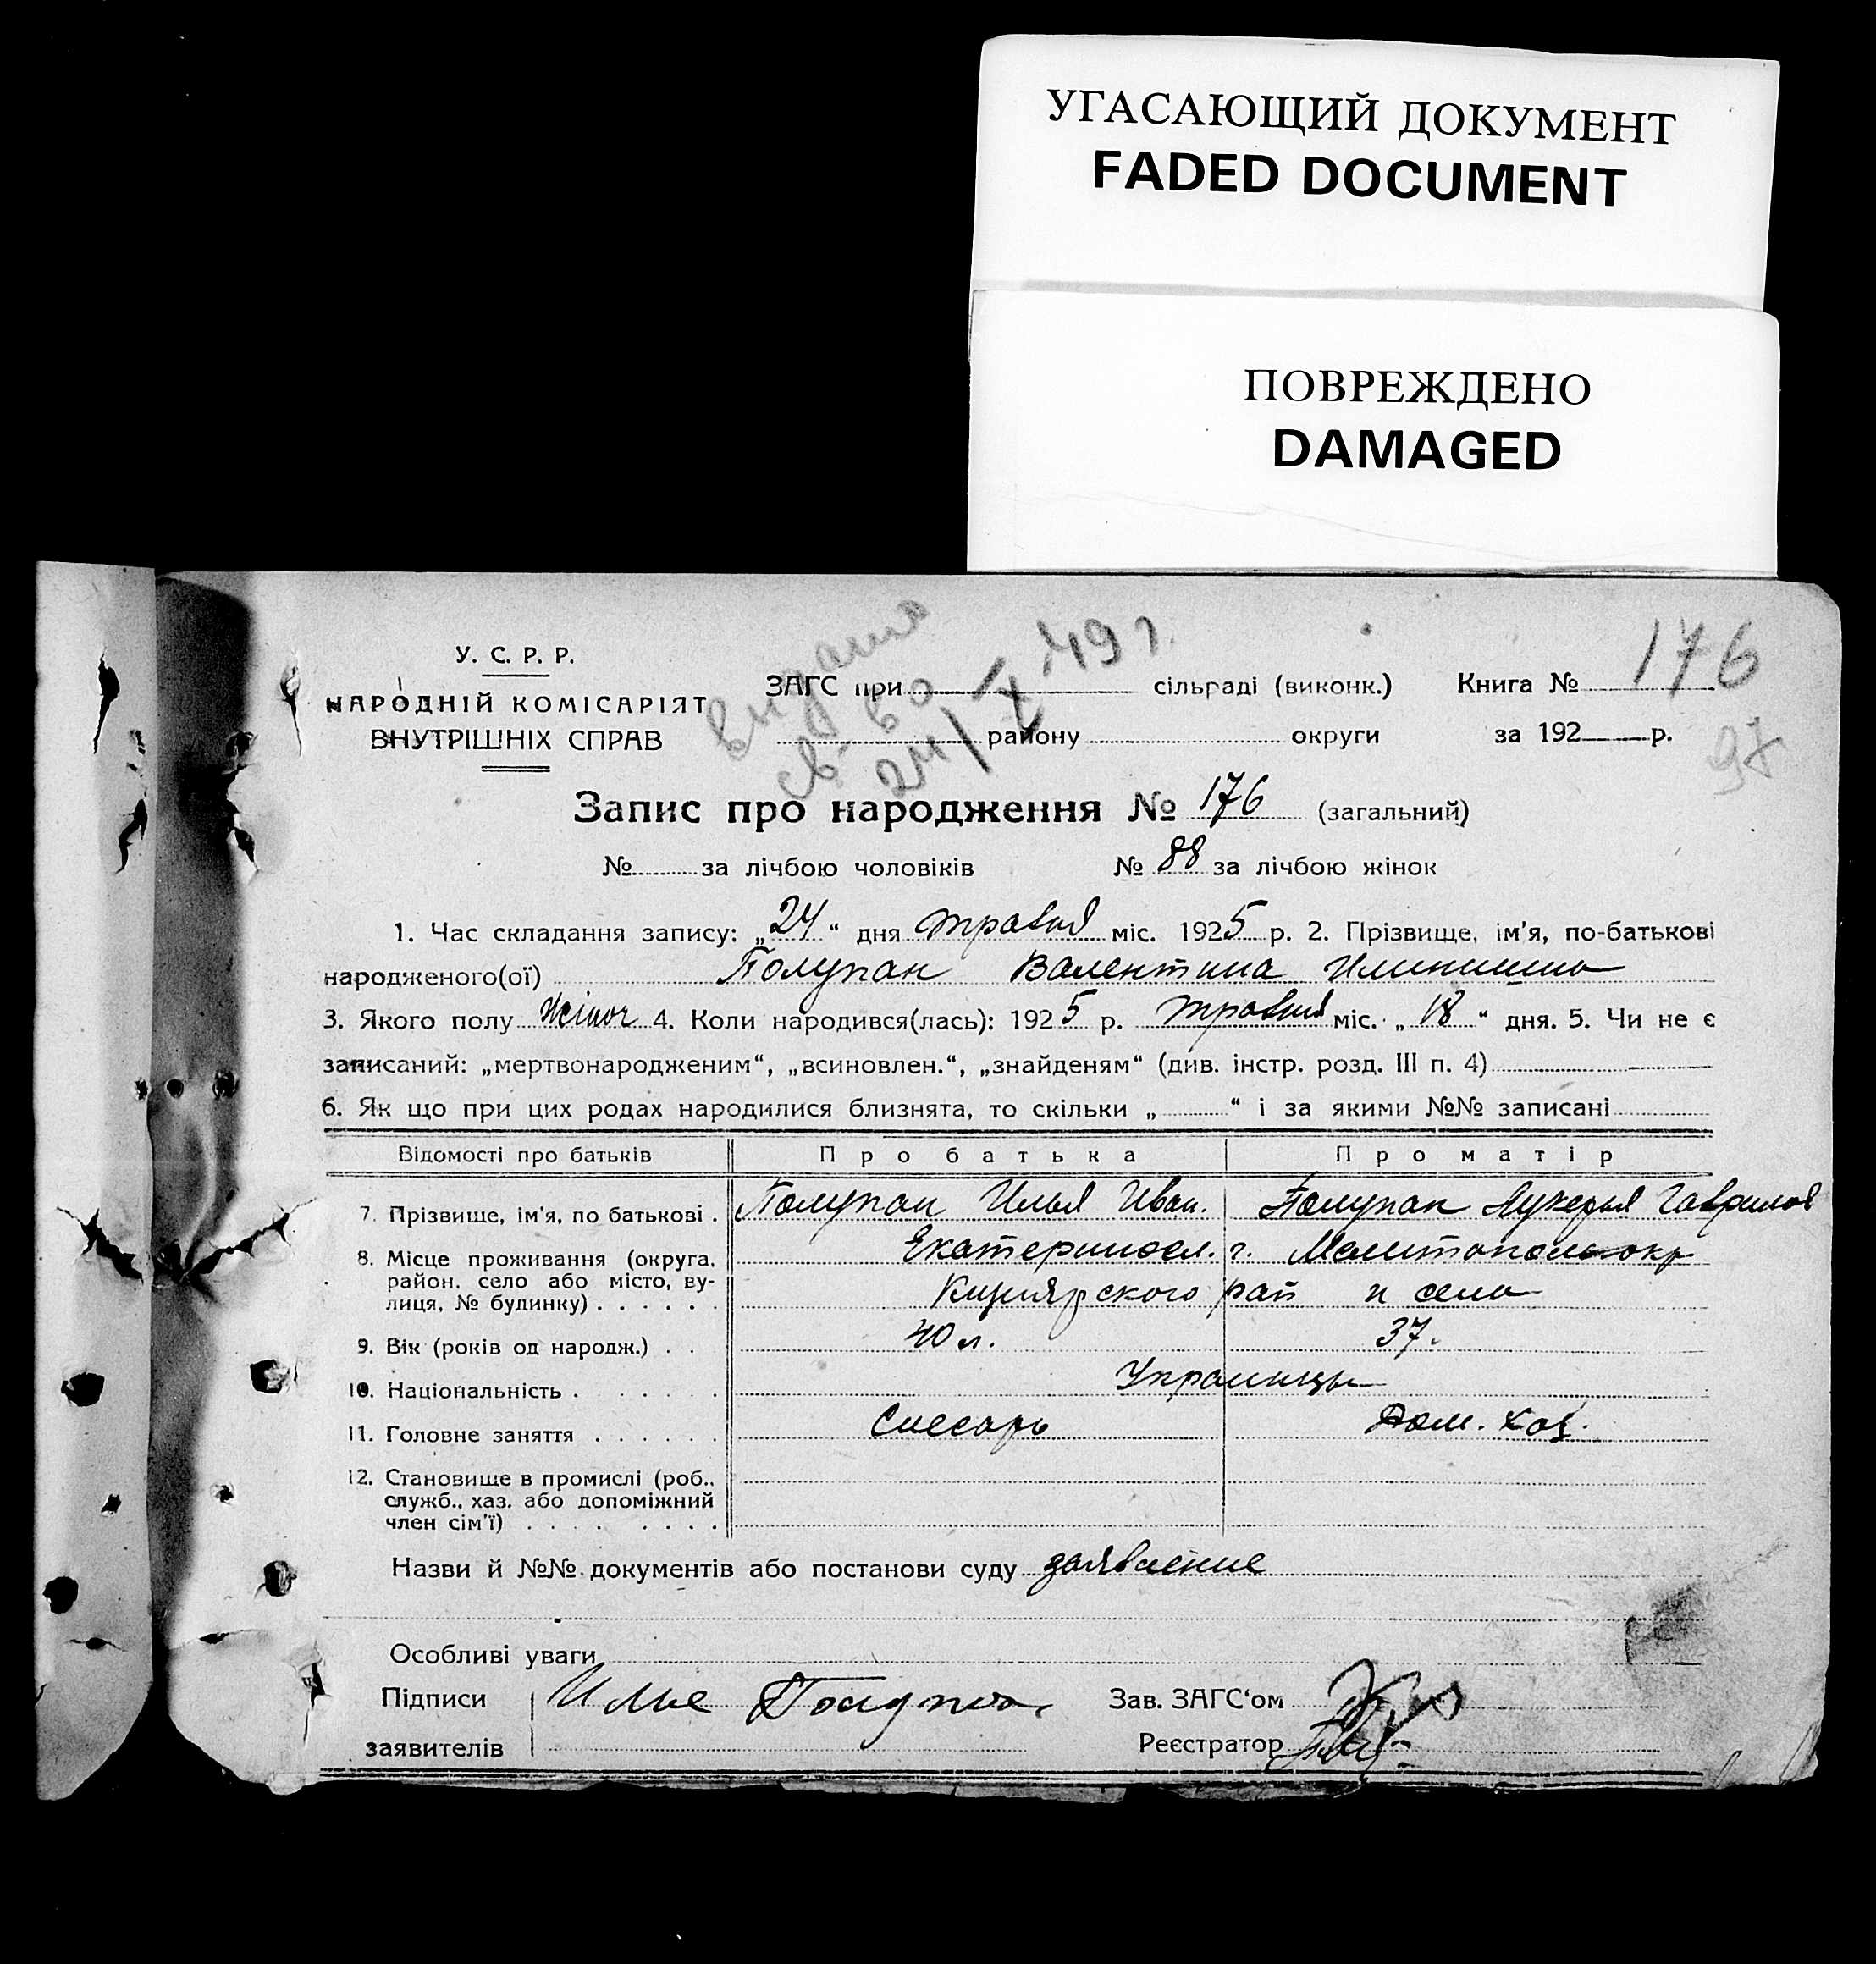 УГАСАЮЩИЙ ДОКУМЕНТ
FADED DOCUMENT
ПОВРЕЖДЕНО
DAMAGED
У. С. Р. Р.
НАРОДНІЙ КОМІСАРІЯТ
ВНУТРІШНІХ СПРАВ
видано
св-во
24/X 49 г.
ЗАГС при сільраді (виконк.) Книга № 176
району округи за 192 р.
97
Запис про народження № 176 (загальний)
№ за лічбою чоловіків № 88 за лічбою жінок
1. Час складання запису: „24“ дня травня міс. 1925 р. 2. Прізвище, ім'я, по-батькові
народженого(ої) Полупан Валентина Илинишна
3. Якого полу жіноч 4. Коли народився(лась): 1925 р. травня міс. „18“ дня. 5. Чи не є
записаний: „мертвонародженим“, „всиновлен.“, „знайденям“ (див. інстр. розд. III п. 4)
6. Як що при цих родах народилися близнята, то скільки „ “ і за якими №№ записані
Відомості про батьків Про батька Про матір
7. Прізвище, ім'я, по батькові . Полупан Илья Иван. Полупан Лукерья Гаврилов
8. Місце проживання (округа, район, село або місто, вулиця, № будинку) . . . . . . Екатериносл. г. Мелитопольокр
рай и село
9. Вік (років од народж.) . . 40 л. 37.
10. Національність . . . . . . . Украинцы
11. Головне заняття . . . . . . Слесарь Дом. хоз.
12. Становище в промислі (роб., служб., хаз. або допоміжний член сім'ї) . . . . . . . .
Назви й №№ документів або постанови суду заявление
Особливі уваги
Підписи Илье Полупан Зав. ЗАГС'ом
заявителів Реєстратор